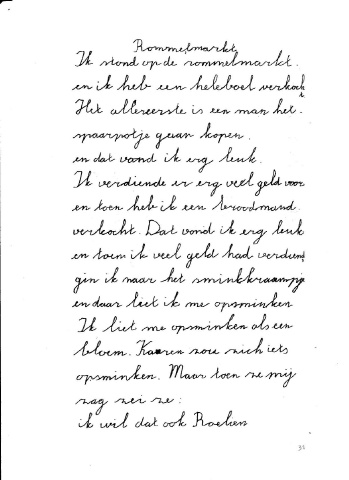 Rommelmarkt
Ik stond op de rommelmarkt.
en ik heb een heleboel verkocht
Het allereerste is een man het.
spaarpotje gaan kopen.
en dat vond ik erg leuk.
Ik verdiende er erg veel geld voor
en toen heb ik een broodmand.
verkocht. Dat vond ik erg leuk
en toen ik veel geld had verdiend
gin ik naar het sminkkraampje
en daar liet ik me opsminken
Ik liet me opsminken als een
bloem. Karen zou zich iets
opsminken. Maar toen ze mij
zag zei ze:
ik wil dat ook Roelien
31